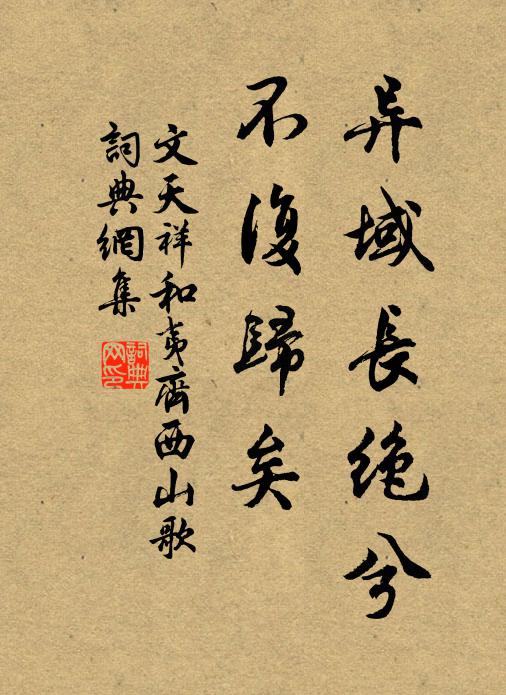 异域長绝兮
不復歸矣
文天祥和夷齊西山歌
詞典網集
詞典网印